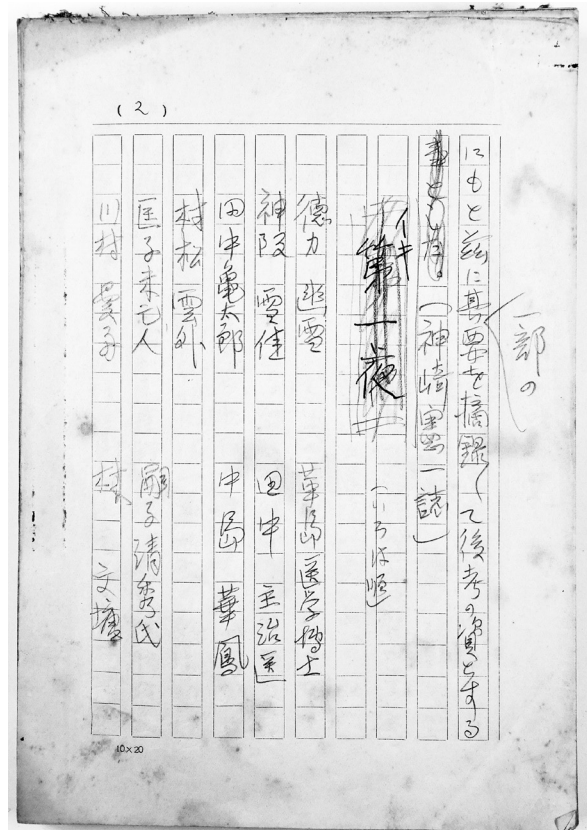 (2)
一部の
にもと茲に其要を摘録して後考の資とする
事とし度。(神崎憲一誌)
イキ
第一夜
(いろは順)
德力 幽雪
華島医学博士
神阪 雪佳
田中 主治医
田中亀太郎
中島 華鳳
村松 雲外
匡子未亡人
嗣子清秀氏
川村 曼舟
文塘
10×20